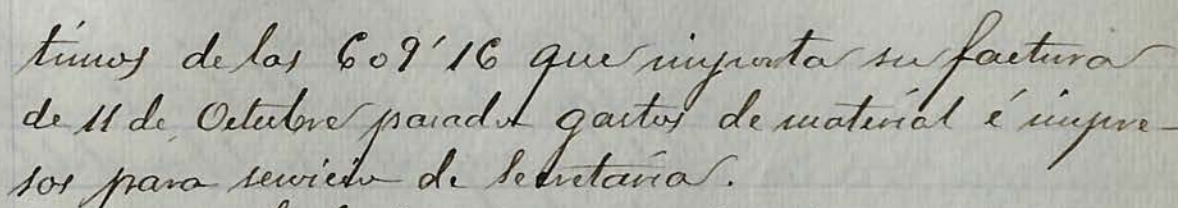 timos de las 609'16 que importa su factura
de 11 de Octubre pasado gastos de material é impre-
sos para servicio de Secretaria.